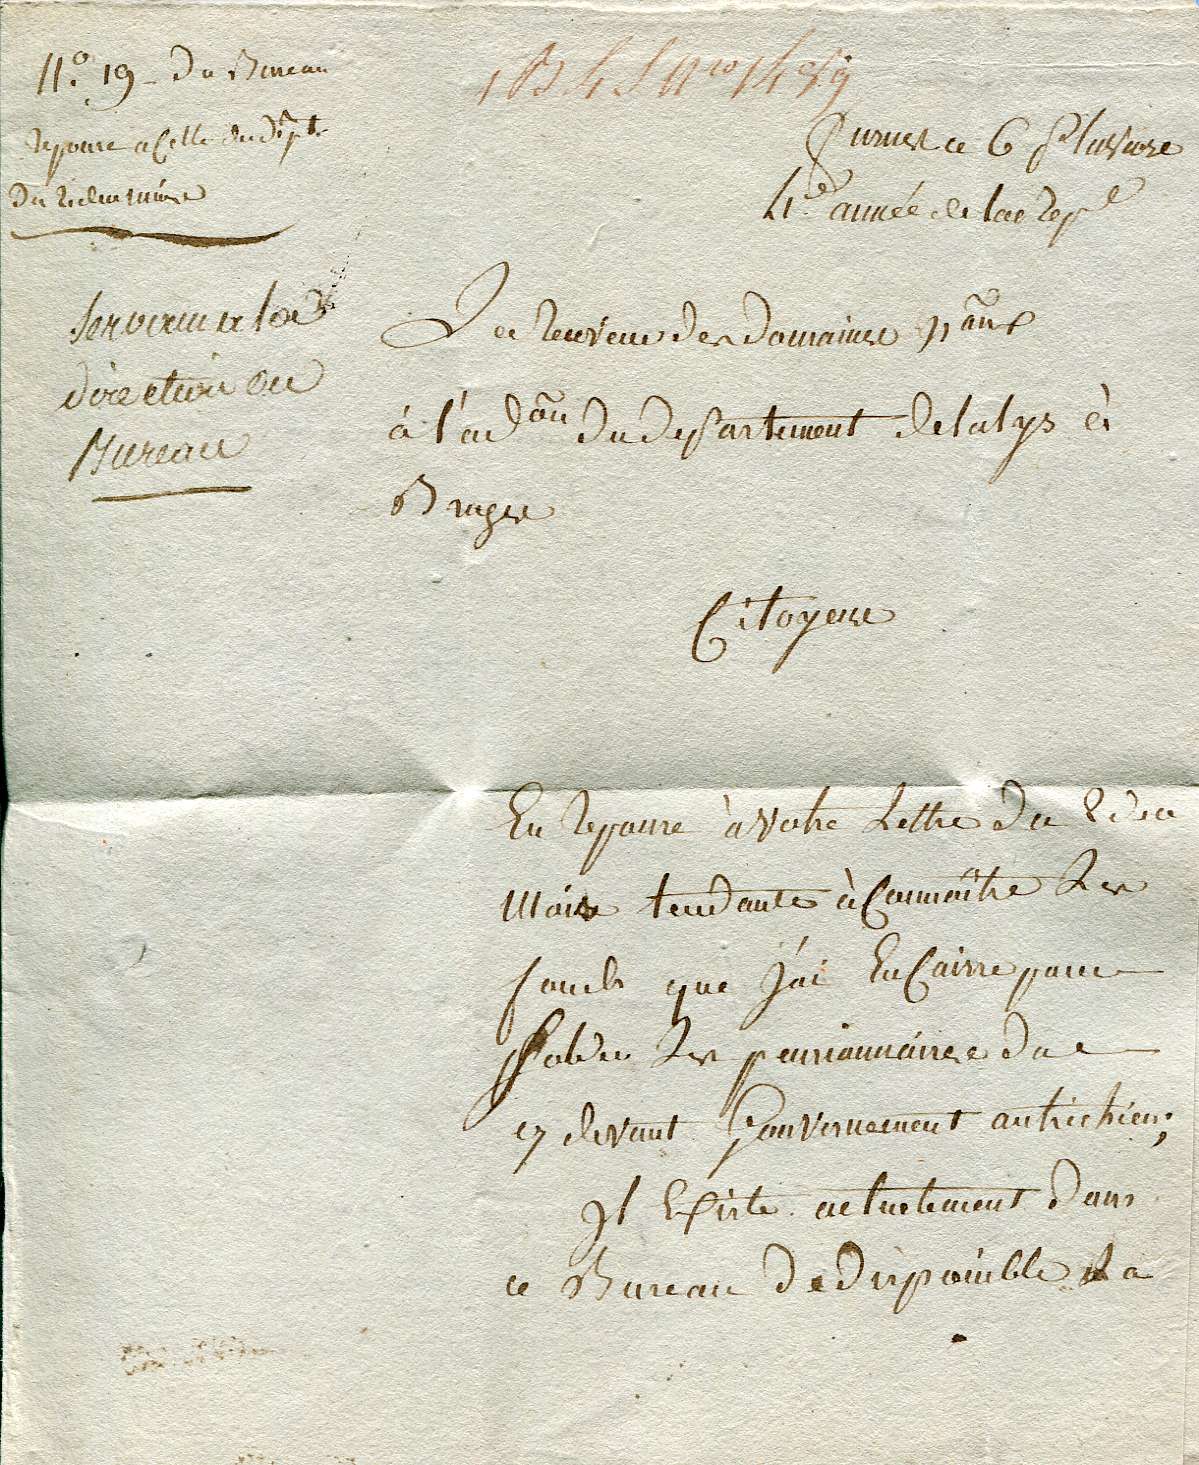 N.º 19 - du Bureau
reponse a Celle du dept.
Servir a la
direction du
Bureau
1 B 4 S Nro 1459
Furnes ce 6 Pluviose
4.e année de la repe
Le Receveur des domaines naux
à l'adon du departement de la lys à
Bruges
Citoyens
En reponse à votre Lettre du 2 de ce
Mois tendante à Connoître Les
fonds que J'ai En Caisse pour
solder Les pensionnaires du
cy devant Gouvernement autrichien;
Il Existe actuelement dans
ce Bureau de disponible La